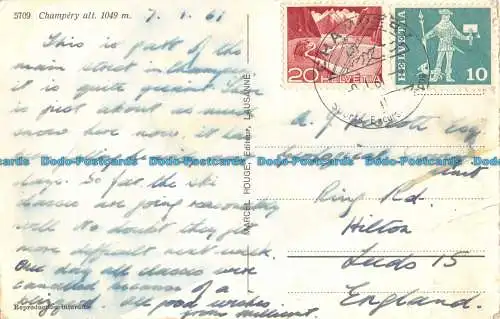 5709 Champéry alt. 1049 m.
7. 1. 61
This is part of the
main street in Champery
it is quite quaint. There
is just about as much
snow here now. it has
days. So far the ski
classes are going reasonably
well. No doubt they get
more difficult next week.
One day all classes were
cancelled because of a
blizzard. All good wishes
from Millicent.
Reproduction interdite
MARCEL ROUGE, Editeur, LAUSANNE
20 HELVETIA
HELVETIA 10
A. J.
Esq
Ring Rd.
Hilton
Leeds 15
England.
Dodo-Postcards Dodo-Postcards Dodo-Postcards Dodo-Postcards